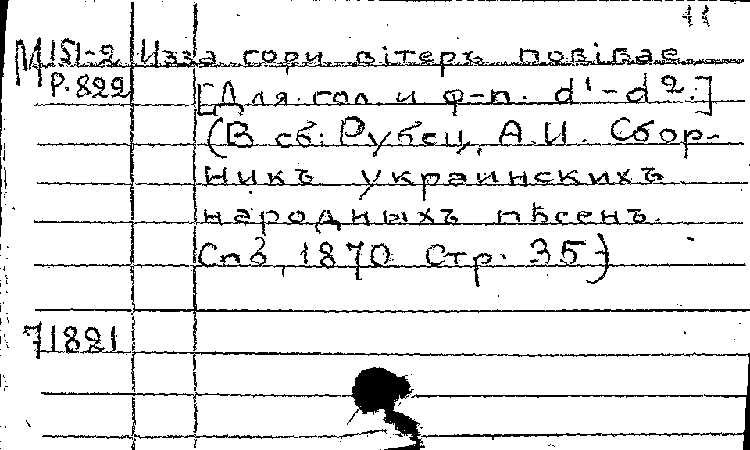 11
М 151-2 Изза гори вітеръ повівае
Р.822 [Для гол. и ф-п. d¹-d².]
(В сб: Рубец, А.И. Сбор-
никъ украинскихъ
народныхъ пѣсенъ.
Спб, 1870 Стр. 35)
71821